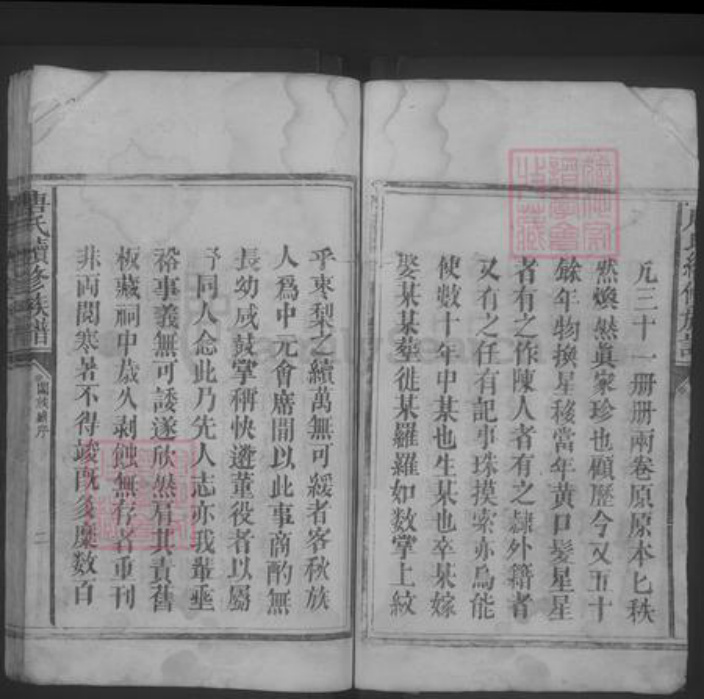 元三十一册册兩卷原原本匕秩
然煥然眞家珍也顧歷今又五十
餘年物換星移當年黃口髮星星
者有之作陳人者有之隸外籍者
又有之任有記事珠摸索亦烏能
使數十年中某也生某也卒某嫁
娶某某塟徙某羅羅如數掌上紋
乎棗梨之續萬無可緩者客秋族
人爲中元會席間以此事商酌無
長幼咸鼓掌稱快遴董役者以屬
予同人念此乃先人志亦我輩亟
裕事義無可諉遂欣然肩其責舊
板藏祠中歲久剥蝕無存者重刊
非両閱寒暑不得竣旣多糜數百
唐氏續修族譜
闔族續序
二